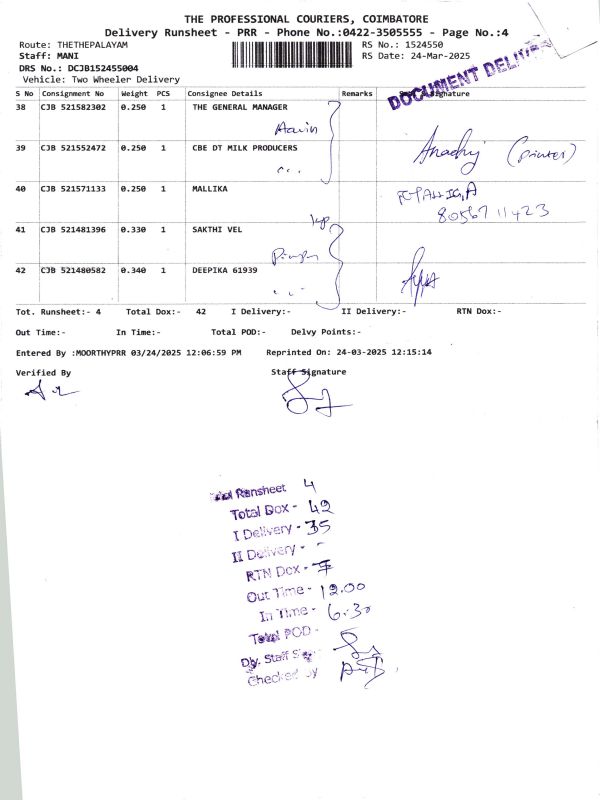 THE PROFESSIONAL COURIERS, COIMBATORE
Delivery Runsheet - PRR - Phone No.:0422-3505555 - Page No.:4
Route: THETHEPALAYAM
RS No.: 1524550
Staff: MANI
RS Date: 24-Mar-2025
DRS No.: DCJB152455004
Vehicle: Two Wheeler Delivery
DOCUMENT DELIVER
S No Consignment No Weight PCS Consignee Details Remarks Signature
38 CJB 521582302 0.250 1 THE GENERAL MANAGER
39 CJB 521552472 0.250 1 CBE DT MILK PRODUCERS
(printer)
40 CJB 521571133 0.250 1 MALLIKA
80567 11423
41 CJB 521481396 0.330 1 SAKTHI VEL
42 CJB 521480582 0.340 1 DEEPIKA 61939
Tot. Runsheet:- 4 Total Dox:- 42 I Delivery:- II Delivery:- RTN Dox:-
Out Time:- In Time:- Total POD:- Delvy Points:-
Entered By :MOORTHYPRR 03/24/2025 12:06:59 PM Reprinted On: 24-03-2025 12:15:14
Verified By Staff Signature
Runsheet 4
Total Dox - 42
I Delivery - 35
II Delivery - -
RTN Dox - 7
Out Time - 12.00
In Time - 6.30
Total POD -
Dly. Staff
Checked by